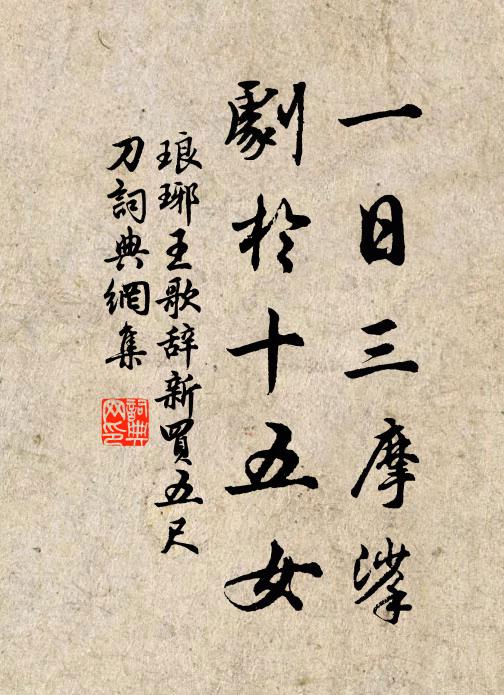 一日三摩挲
劇於十五女
琅琊王歌辞新買五尺
刀詞典網集
詞典
网印